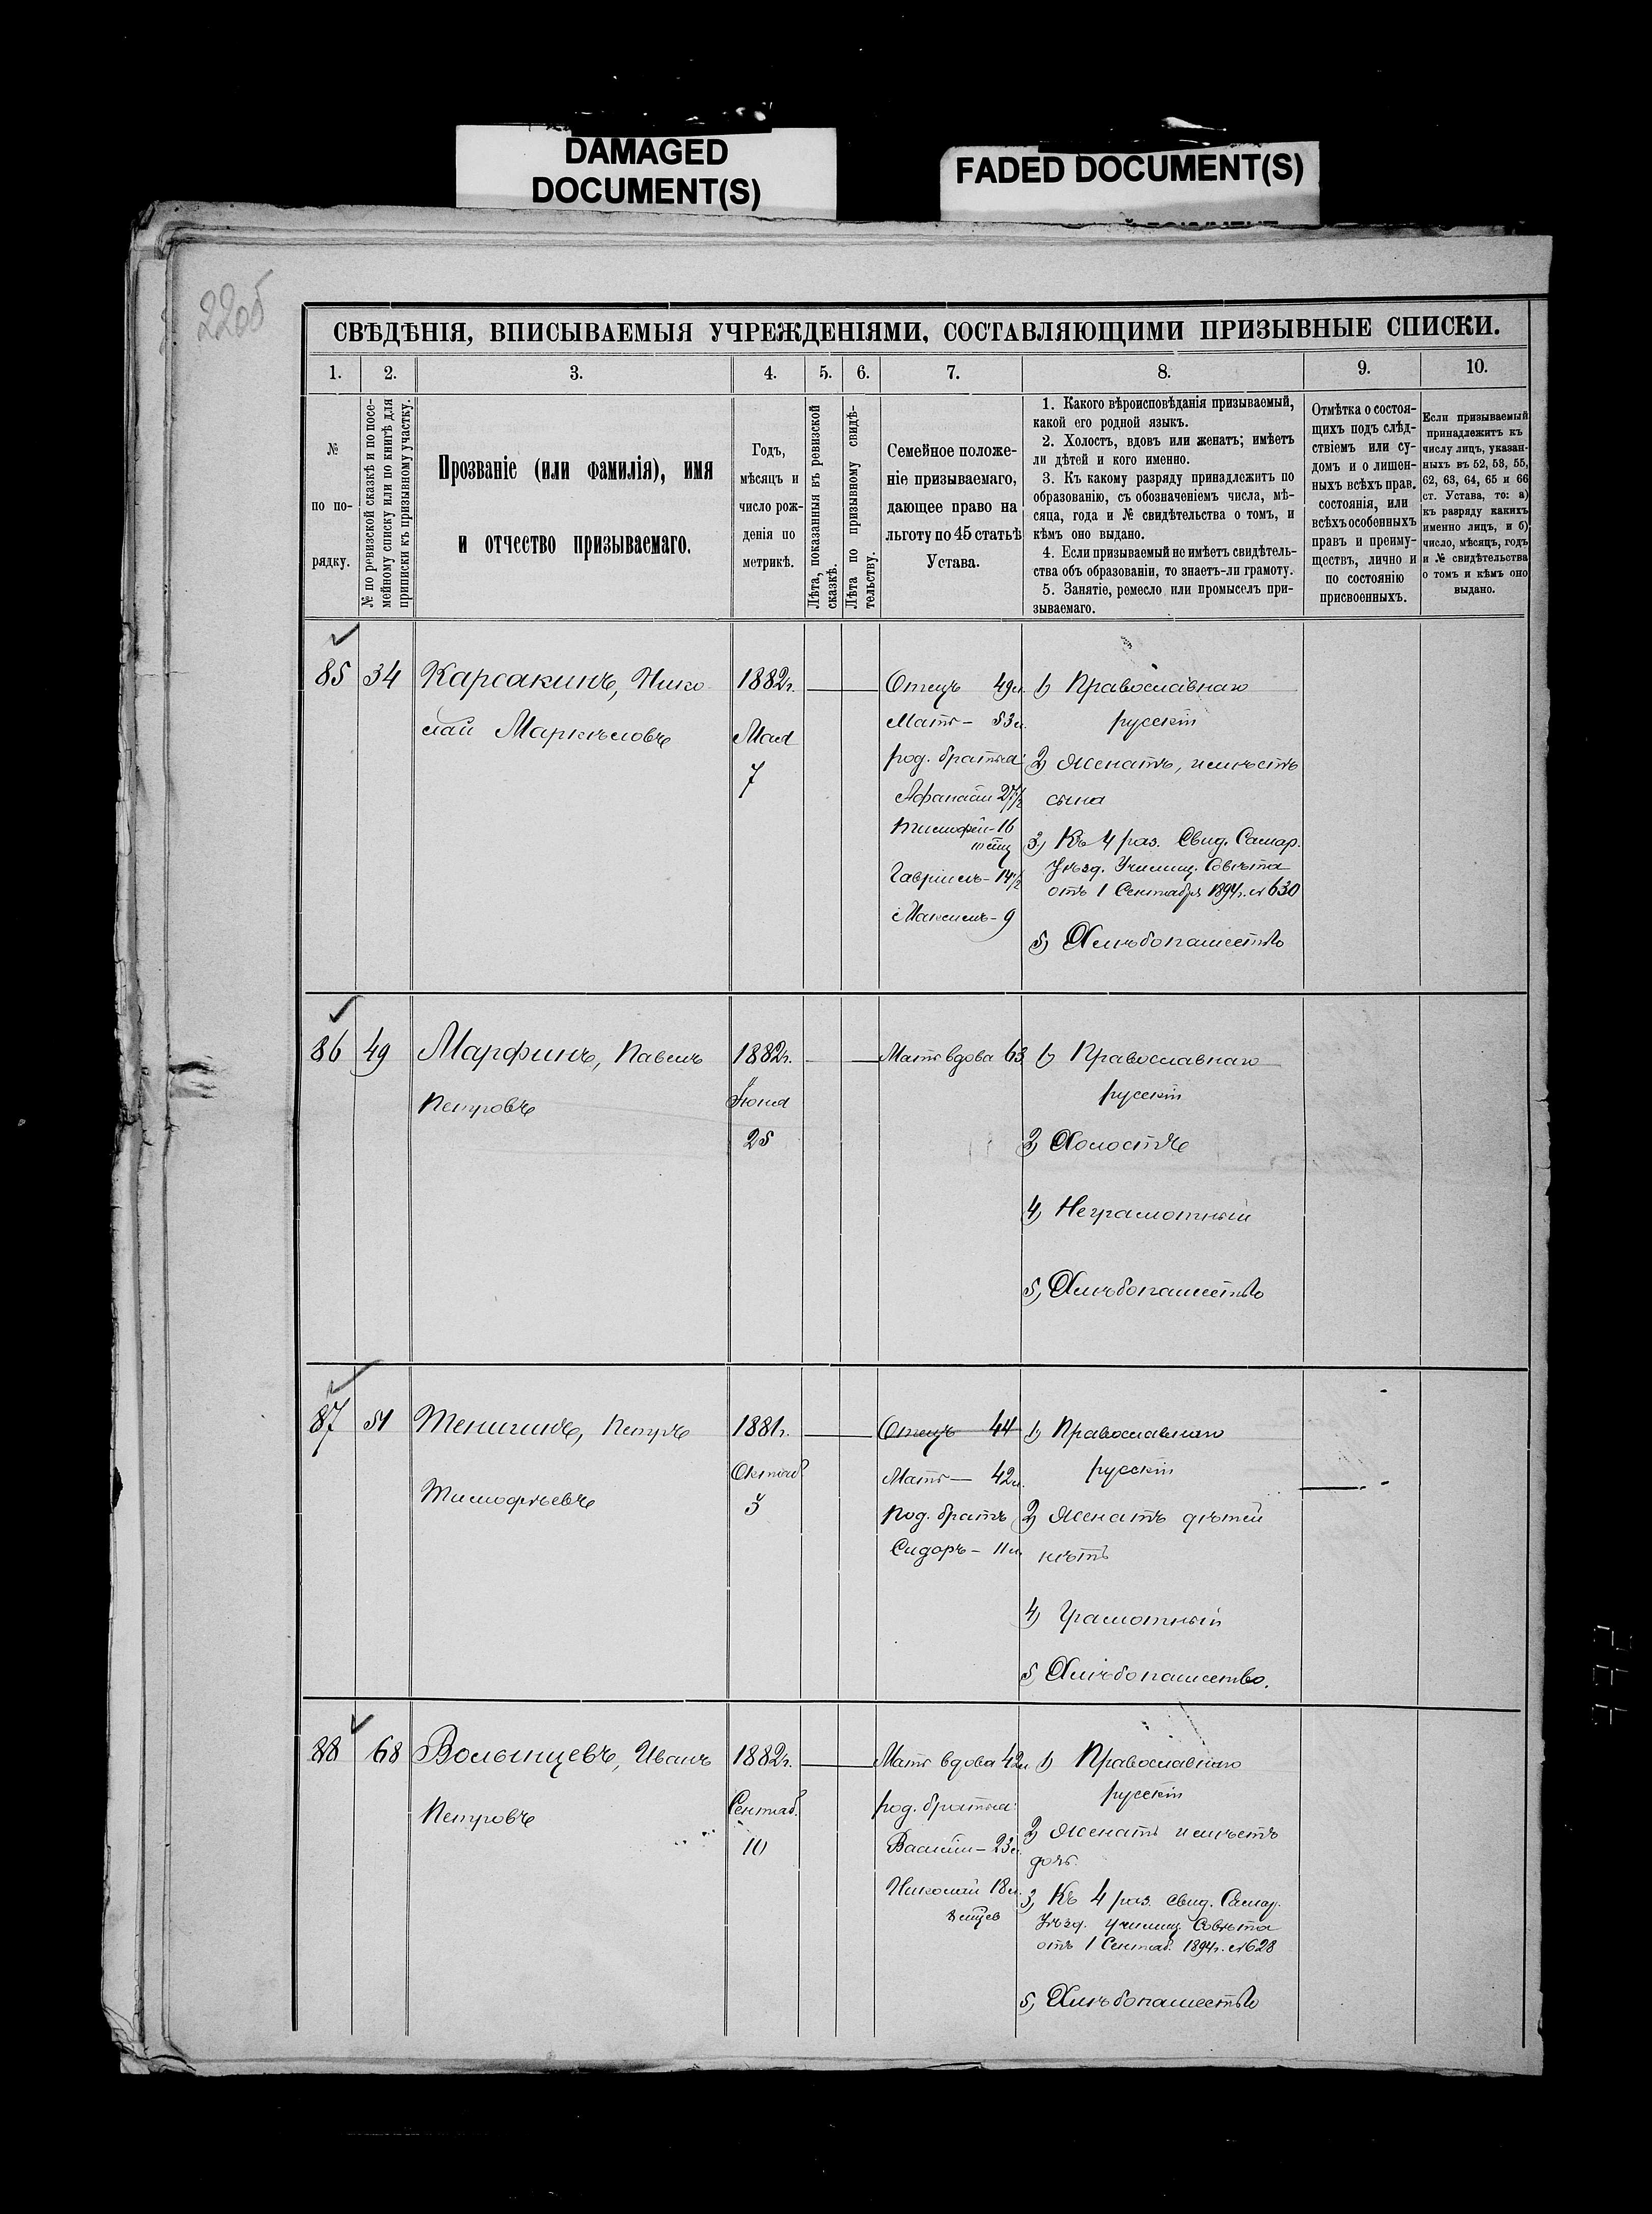 DAMAGED
DOCUMENT(S)
FADED DOCUMENT(S)
22об
СВѢДѢНІЯ, ВПИСЫВАЕМЫЯ УЧРЕЖДЕНІЯМИ, СОСТАВЛЯЮЩИМИ ПРИЗЫВНЫЕ СПИСКИ.
1. 2. 3. 4. 5. 6. 7. 8. 9. 10.
№
по по-
рядку.
№ по ревизской сказкѣ и по посе-
мейному списку или по книгѣ для
приписки къ призывному участку.
Прозваніе (или фамилія), имя
и отчество призываемаго.
Годъ,
мѣсяцъ и
число рож-
денія по
метрикѣ.
Лѣта, показанныя въ ревизской
сказкѣ.
Лѣта по призывному свидѣ-
тельству.
Семейное положе-
ніе призываемаго,
дающее право на
льготу по 45 статьѣ
Устава.
1. Какого вѣроисповѣданія призываемый,
какой его родной языкъ.
2. Холостъ, вдовъ или женатъ; имѣетъ
ли дѣтей и кого именно.
3. Къ какому разряду принадлежитъ по
образованію, съ обозначеніемъ числа, мѣ-
сяца, года и № свидѣтельства о томъ, и
кѣмъ оно выдано.
4. Если призываемый не имѣетъ свидѣтель-
ства объ образованіи, то знаетъ-ли грамоту.
5. Занятіе, ремесло или промыселъ при-
зываемаго.
Отмѣтка о состоя-
щихъ подъ слѣд-
ствіемъ или су-
домъ и о лишен-
ныхъ всѣхъ прав.
состоянія, или
всѣхъ особенныхъ
правъ и преиму-
ществъ, лично и
по состоянію
присвоенныхъ.
Если призываемый
принадлежитъ къ
числу лицъ, указан-
ныхъ въ 52, 53, 55,
62, 63, 64, 65 и 66
ст. Устава, то: а)
къ разряду какихъ
именно лицъ, и б)
число, мѣсяцъ, годъ
и № свидѣтельства
о томъ и кѣмъ оно
выдано.
85 34 Карсакинъ, Нико
лай Маркѣловъ
1882г.
Мая
7
Отецъ 49л.
Мать – 53л.
род. братья:
Афанасій 27½
Тимофей – 16
Гавріилъ – 14½
Максимъ – 9
1) Православнаго
русскій
2) Женатъ, имѣетъ
сына
3) Къ 4 раз. Свид. Самар.
Уѣзд. Училищ. Совѣта
отъ 1 Сентября 1894г. № 630
5) Хлѣбопашество
86 49 Марфинъ, Павелъ
Петровъ
1882г.
Іюня
25
Мать вдова 63
1) Православнаго
русскій
2) Холостъ
4) Неграмотный
5) Хлѣбопашество
87 51 Тенигинъ, Петръ
Тимофѣевъ
1881г.
Октяб
3
Отецъ 44
Мать – 42л.
Род. братъ
Сидоръ – 11л.
1) Православнаго
русскій
2) Женатъ дѣтей
нѣтъ
4) Грамотный
5) Хлѣбопашество.
88 68 Волынцевъ, Иванъ
Петровъ
1882г.
Сентяб.
10
Мать вдова 42л
род. братья:
Василій – 23л.
Николай 18л.
1) Православнаго
русскій
2) Женатъ имѣетъ
дочь.
3) Къ 4 раз. свид. Самар.
Уѣзд. Училищ. Совѣта
отъ 1 Сентяб. 1894г. № 628
5) Хлѣбопашество